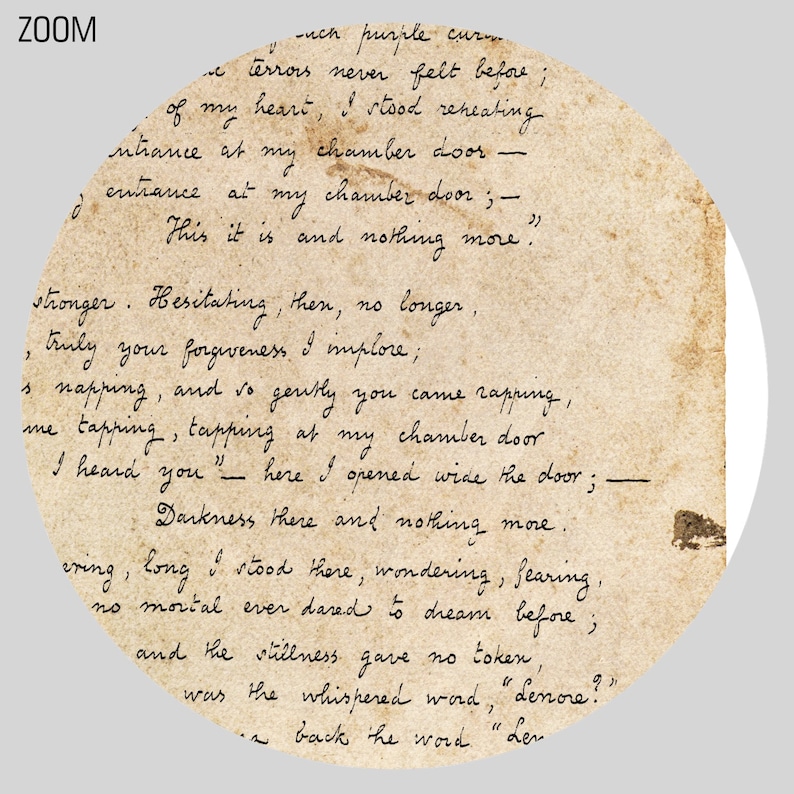 ZOOM
each purple cur
terrors never felt before ;
of my heart, I stood reheating
ntrance at my chamber door —
entrance at my chamber door ; —
This it is and nothing more."
stronger . Hesitating, then, no longer,
, truly your forgiveness I implore ;
s napping, and so gently you came rapping,
me tapping, tapping at my chamber door
I heard you" — here I opened wide the door ; —
Darkness there and nothing more.
ering, long I stood there, wondering, fearing,
no mortal ever dared to dream before ;
and the stillness gave no token,
was the whispered word, "Lenore?"
back the word "Len